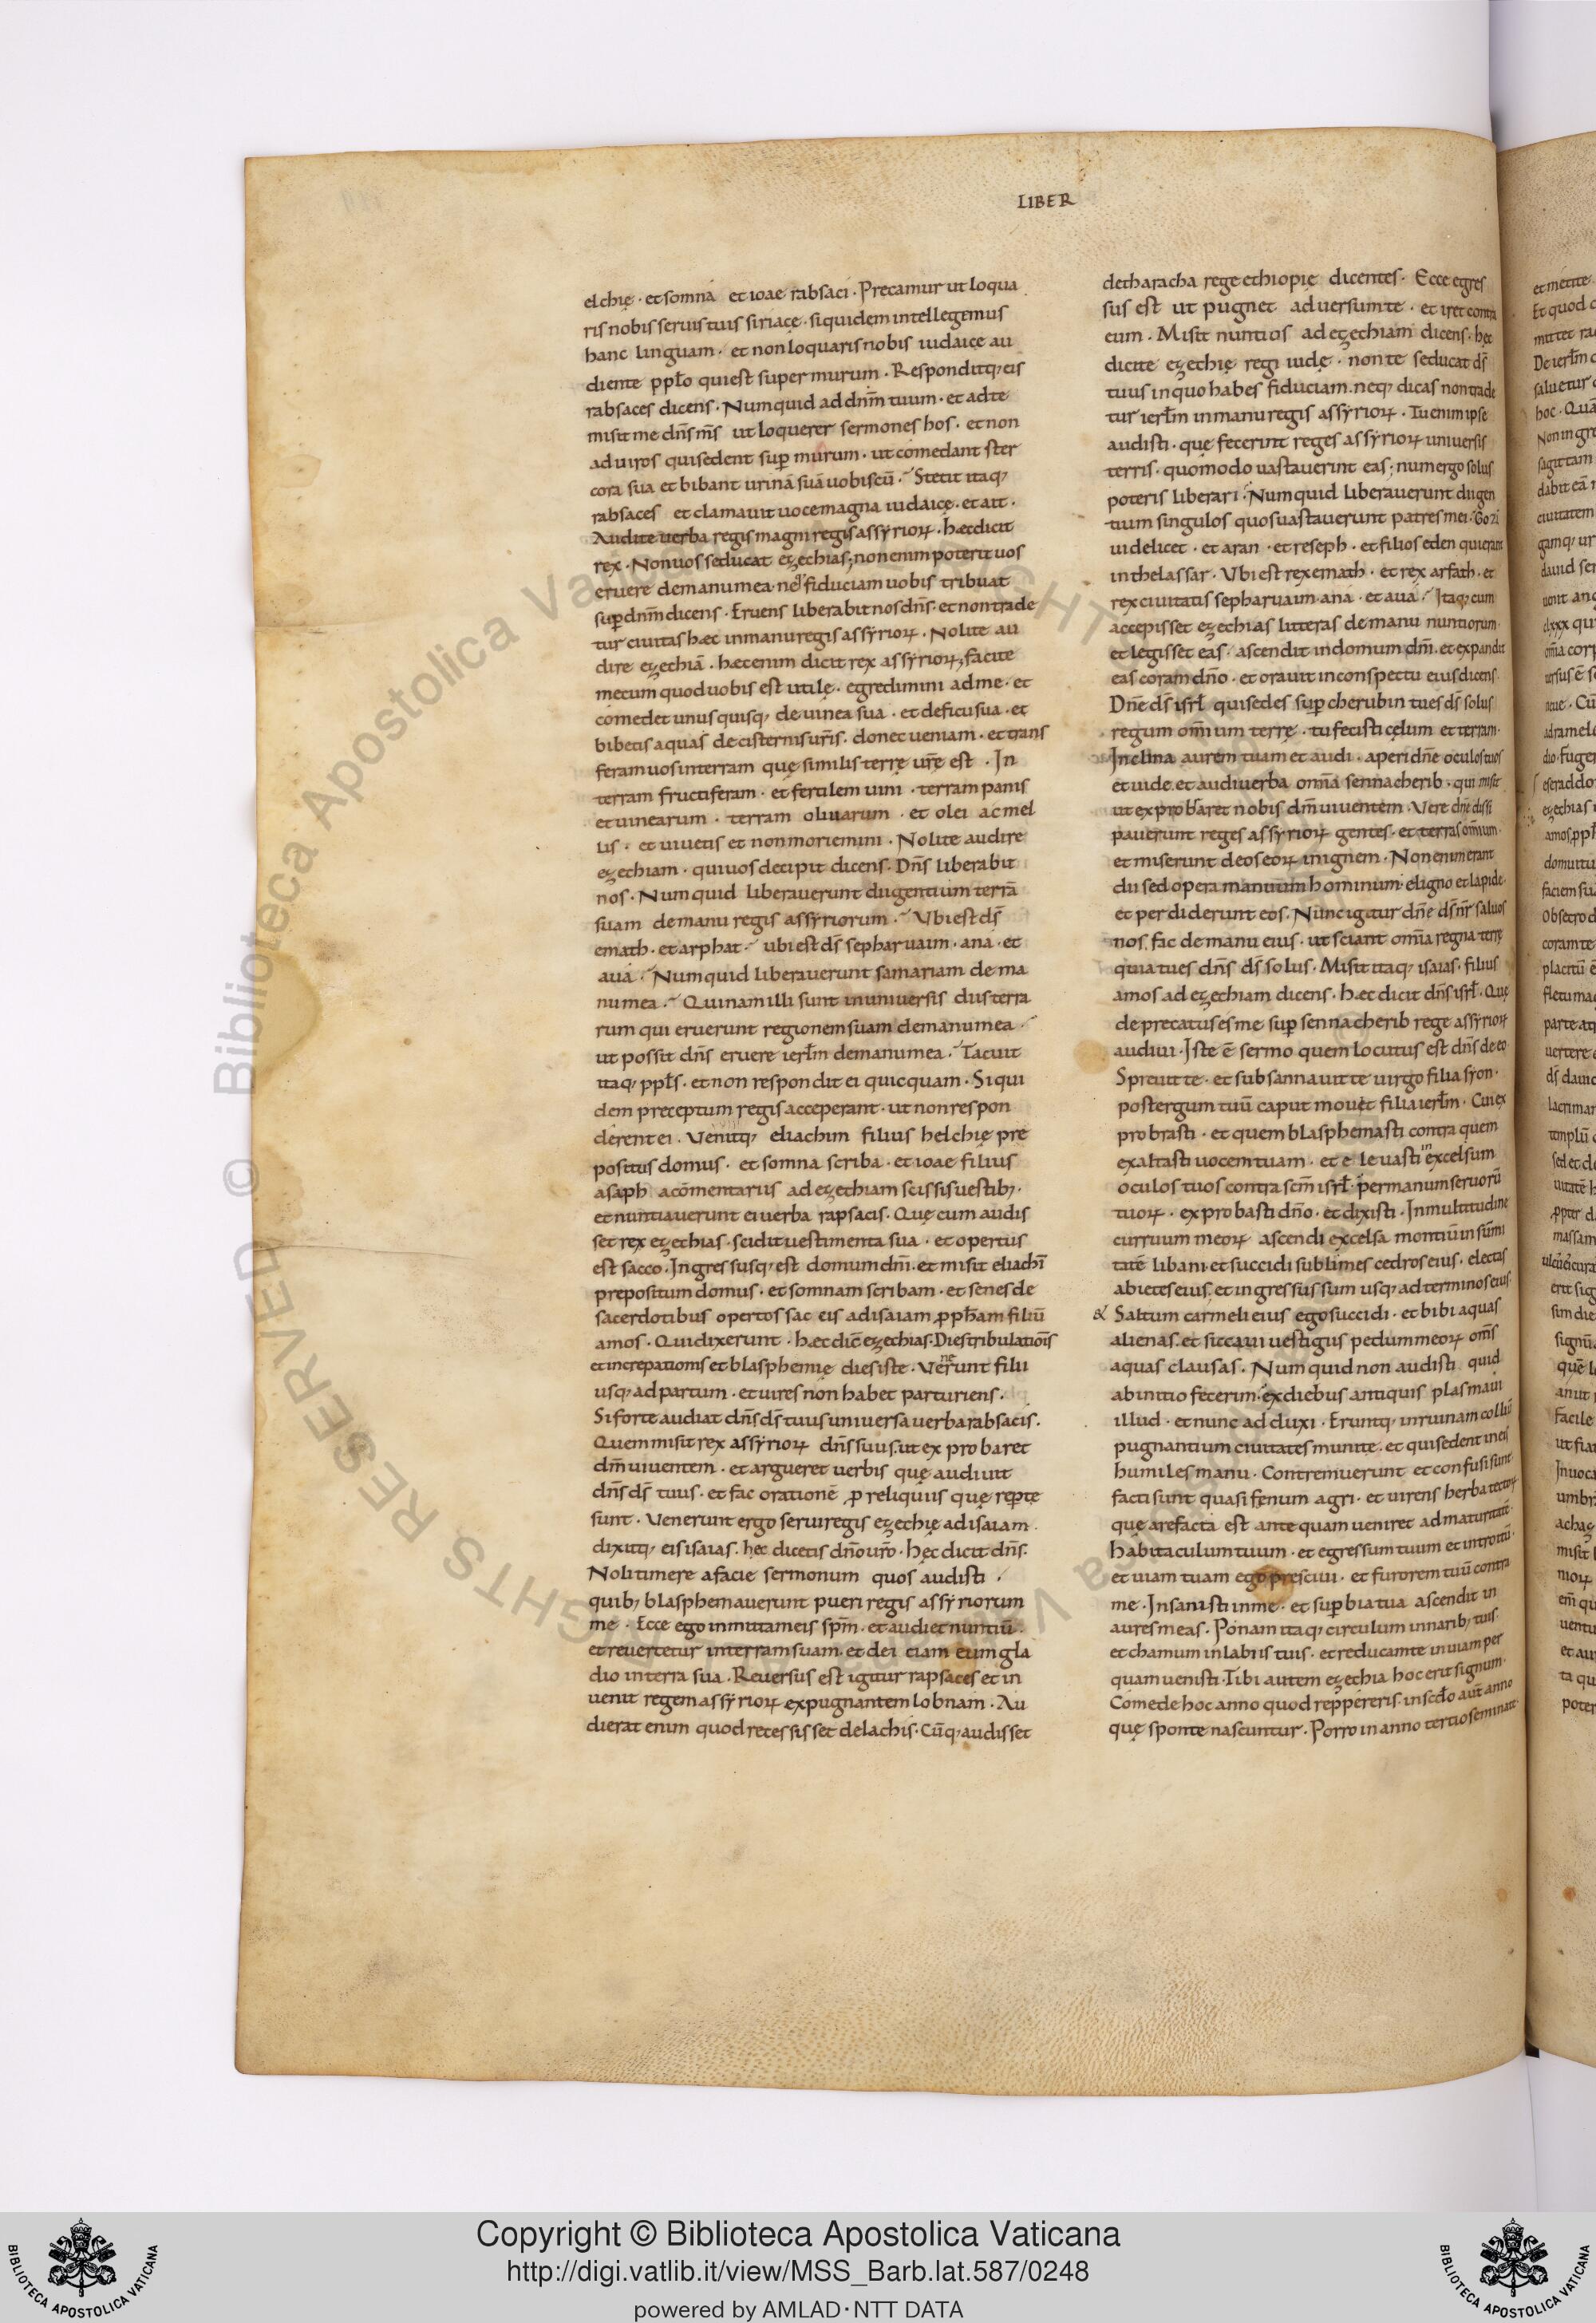 LIBER
elchię · et somna et ioae rabsaci · Precamur ut loqua
ris nobis seruis tuis siriace · siquidem intellegimus
hanc linguam · et non loquaris nobis iudaice au
diente ppło qui est super murum · Responditq; eis
rabsaces dicens · Numquid ad dnm̄ tuum · et ad te
misit me dn̄s ms̄ ut loquerer sermones hos · et non
ad uiros qui sedent sup̱ murum · ut comedant ster
cora sua et bibant urinā suā uobiscū · Stetit itaq;
rabsaces et clamauit uoce magna iudaice · et ait ·
Audite uerba regis magni regis assyrioꝝ · hæc dicit
rex · Non uos seducat eȝechias; non enim poterit uos
eruere de manu mea · neq; fiduciam uobis tribuat
sup̱ dnm̄ dicens · Eruens liberabit nos dn̄s · et non trade
tur ciuitas hæc in manu regis assyrioꝝ · Nolite au
dire eȝechiā · hæc enim dicit rex assyrioꝝ; facite
mecum quod uobis est utile · egredimini ad me · et
comedet unusquisq; de uinea sua · et de ficu sua · et
bibetis aquas de cisternis ur̄is · donec ueniam · et trans
feram uos in terram quę similis terrę ur̄ę est · In
terram fructiferam · et fertilem uini · terram panis
et uinearum · terram oliuarum · et olei ac mel
lis · et uiuetis et non moriemini · Nolite audire
eȝechiam · qui uos decipit dicens · Dn̄s liberabit
nos · Numquid liberauerunt dii gentium terrā
suam de manu regis assyriorum · Vbi est ds̄
emath · et arphat · ubi est ds̄ sepharuaim · ana · et
aua · Numquid liberauerunt samariam de ma
nu mea · Quinam illi sunt in uniuersis diis terra
rum qui eruerunt regionem suam de manu mea ·
ut possit dn̄s eruere ierłm de manu mea · Tacuit
itaq; ppłs · et non respondit ei quicquam · Siqui
dem preceptum regis acceperant · ut non respon
derent ei · Venitq; eliachim filius helchię pre
positus domus · et somna scriba · et ioae filius
asaph a cōmentariis ad eȝechiam scissis uestib; ·
et nuntiauerunt ei uerba rapsacis · Quę cum audis
set rex eȝechias · scidit uestimenta sua · et opertus
est sacco · Ingressusq; est domum dn̄i · et misit eliachī
prepositum domus · et somnam scribam · et senes de
sacerdotibus opertos sac eis ad isaiam ꝓpħam filiū
amos · Qui dixerunt · hæc dic̄ eȝechias · Dies tribulationis̄
et increpationis et blasphemię dies iste · Venerunt filii
usq; ad partum · et uires non habet parturiens ·
Si forte audiat dn̄s ds̄ tuus uniuersa uerba rabsacis ·
Quem misit rex assyrioꝝ dn̄s suus · ut exprobaret
dm̄ uiuentem · et argueret uerbis quę audiuit
dn̄s ds̄ tuus · et fac orationē ꝓ reliquiis quę rep̱tę
sunt · Venerunt ergo serui regis eȝechię ad isaiam ·
dixitq; eis isaias · hęc dicetis dn̄o ur̄o · Hęc dicit dn̄s ·
Noli timere a facie sermonum quos audisti ·
quib; blasphemauerunt pueri regis assyriorum
me · Ecce ego inmittam eis spm̄ · et audiet nuntiū ·
et reuertetur in terram suam · et deiciam eum gla
dio in terra sua · Reuersus est igitur rapsaces et in
uenit regem assyrioꝝ expugnantem lobnam · Au
dierat enim quod recessisset de lachis · Cūq; audisset
de tharacha rege ethiopię dicentes · Ecce egres
sus est ut pugnet aduersum te · et iret contra
eum · Misit nuntios ad eȝechiam dicens · hęc
dicite eȝechię regi iudę · non te seducat ds̄
tuus in quo habes fiduciam · neq; dicas non trade
tur ierłm in manu regis assyrioꝝ · Tu enim ipse
audisti · quę fecerint reges assyrioꝝ uniuersis
terris · quomodo uastauerint eas; num ergo solus
poteris liberari · Numquid liberauerunt dii gen
tium singulos quos uastauerunt patres mei · Gozi
uidelicet · et aran · et reseph · et filios eden qui erant
in thelassar · Vbi est rex emath · et rex arfath · et
rex ciuitatis sepharuaim · ana · et aua · Itaq; cum
accepisset eȝechias litteras de manu nuntiorum ·
et legisset eas · ascendit in domum dn̄i · et expandit
eas coram dn̄o · et orauit in conspectu eius dicens ·
Dn̄e ds̄ isrł qui sedes sup̱ cherubin tu es ds̄ solus
regum om̄ium terrę · tu fecisti cęlum et terram ·
Inclina aurem tuam et audi · aperi dn̄e oculos tuos
et uide · et audi uerba omn̄a sennacherib · qui misit
ut exprobraret nobis dm̄ uiuentem · Vere dn̄e dissi
pauerunt reges assyrioꝝ gentes · et terras om̄ium ·
et miserunt deos eoꝝ in ignem · Non enim erant
dii sed opera manuum hominum · e ligno et lapide ·
et perdiderunt eos · Nunc igitur dn̄e ds̄ nr̄ saluos
nos fac de manu eius · ut sciant omn̄a regna terrę
quia tu es dn̄s ds̄ solus · Misit itaq; isaias · filius
amos ad eȝechiam dicens · hæc dicit dn̄s isrł · Quę
deprecatus es me sup̱ sennacherib rege assyrioꝝ
audiui · Iste ē sermo quem locutus est dn̄s de eo
Spreuit te · et subsannauit te uirgo filia syon ·
post ergum tuū caput mouet filia ierłm · Cui ex
probrasti · et quem blasphemasti contra quem
exaltasti uocem tuam · et eleuasti in excelsum
oculos tuos contra scm̄ isrł · per manum seruorū
tuoꝝ · exprobasti dn̄o · et dixisti · In multitudine
curruum meoꝝ ascendi excelsa montiū in sum̄i
tatē libani · et succidi sublimes cedros eius · electas
abietes eius · et ingressus sum usq; ad terminos eius ·
& Saltum carmeli eius ego succidi · et bibi aquas
alienas · et siccaui uestigiis pedum meoꝝ oms̄
aquas clausas · Numquid non audisti quid
ab initio fecerim · ex diebus antiquis plasmaui
illud · et nunc adduxi · Eruntq; in ruinam colliū
pugnantium ciuitates munite · et qui sedent in eis
humiles manu · Contremuerunt et confusi sunt ·
facti sunt quasi fenum agri · et uirens herba tectoꝝ
quę arefacta est antequam ueniret ad maturitatē ·
habitaculum tuum · et egressum tuum et introitū ·
et uiam tuam ego presciui · et furorem tuū contra
me · Insanisti in me · et sup̱bia tua ascendit in
aures meas · Ponam itaq; circulum in narib; tuis ·
et chamum in labiis tuis · et reducam te in uiam per
quam uenisti · Tibi autem eȝechia hoc erit signum ·
Comede hoc anno quod reppereris · in scdo̱ aut̄ anno
quę sponte nascuntur · Porro in anno tertio seminate ·
Copyright © Biblioteca Apostolica Vaticana
http://digi.vatlib.it/view/MSS_Barb.lat.587/0248
powered by AMLAD·NTT DATA